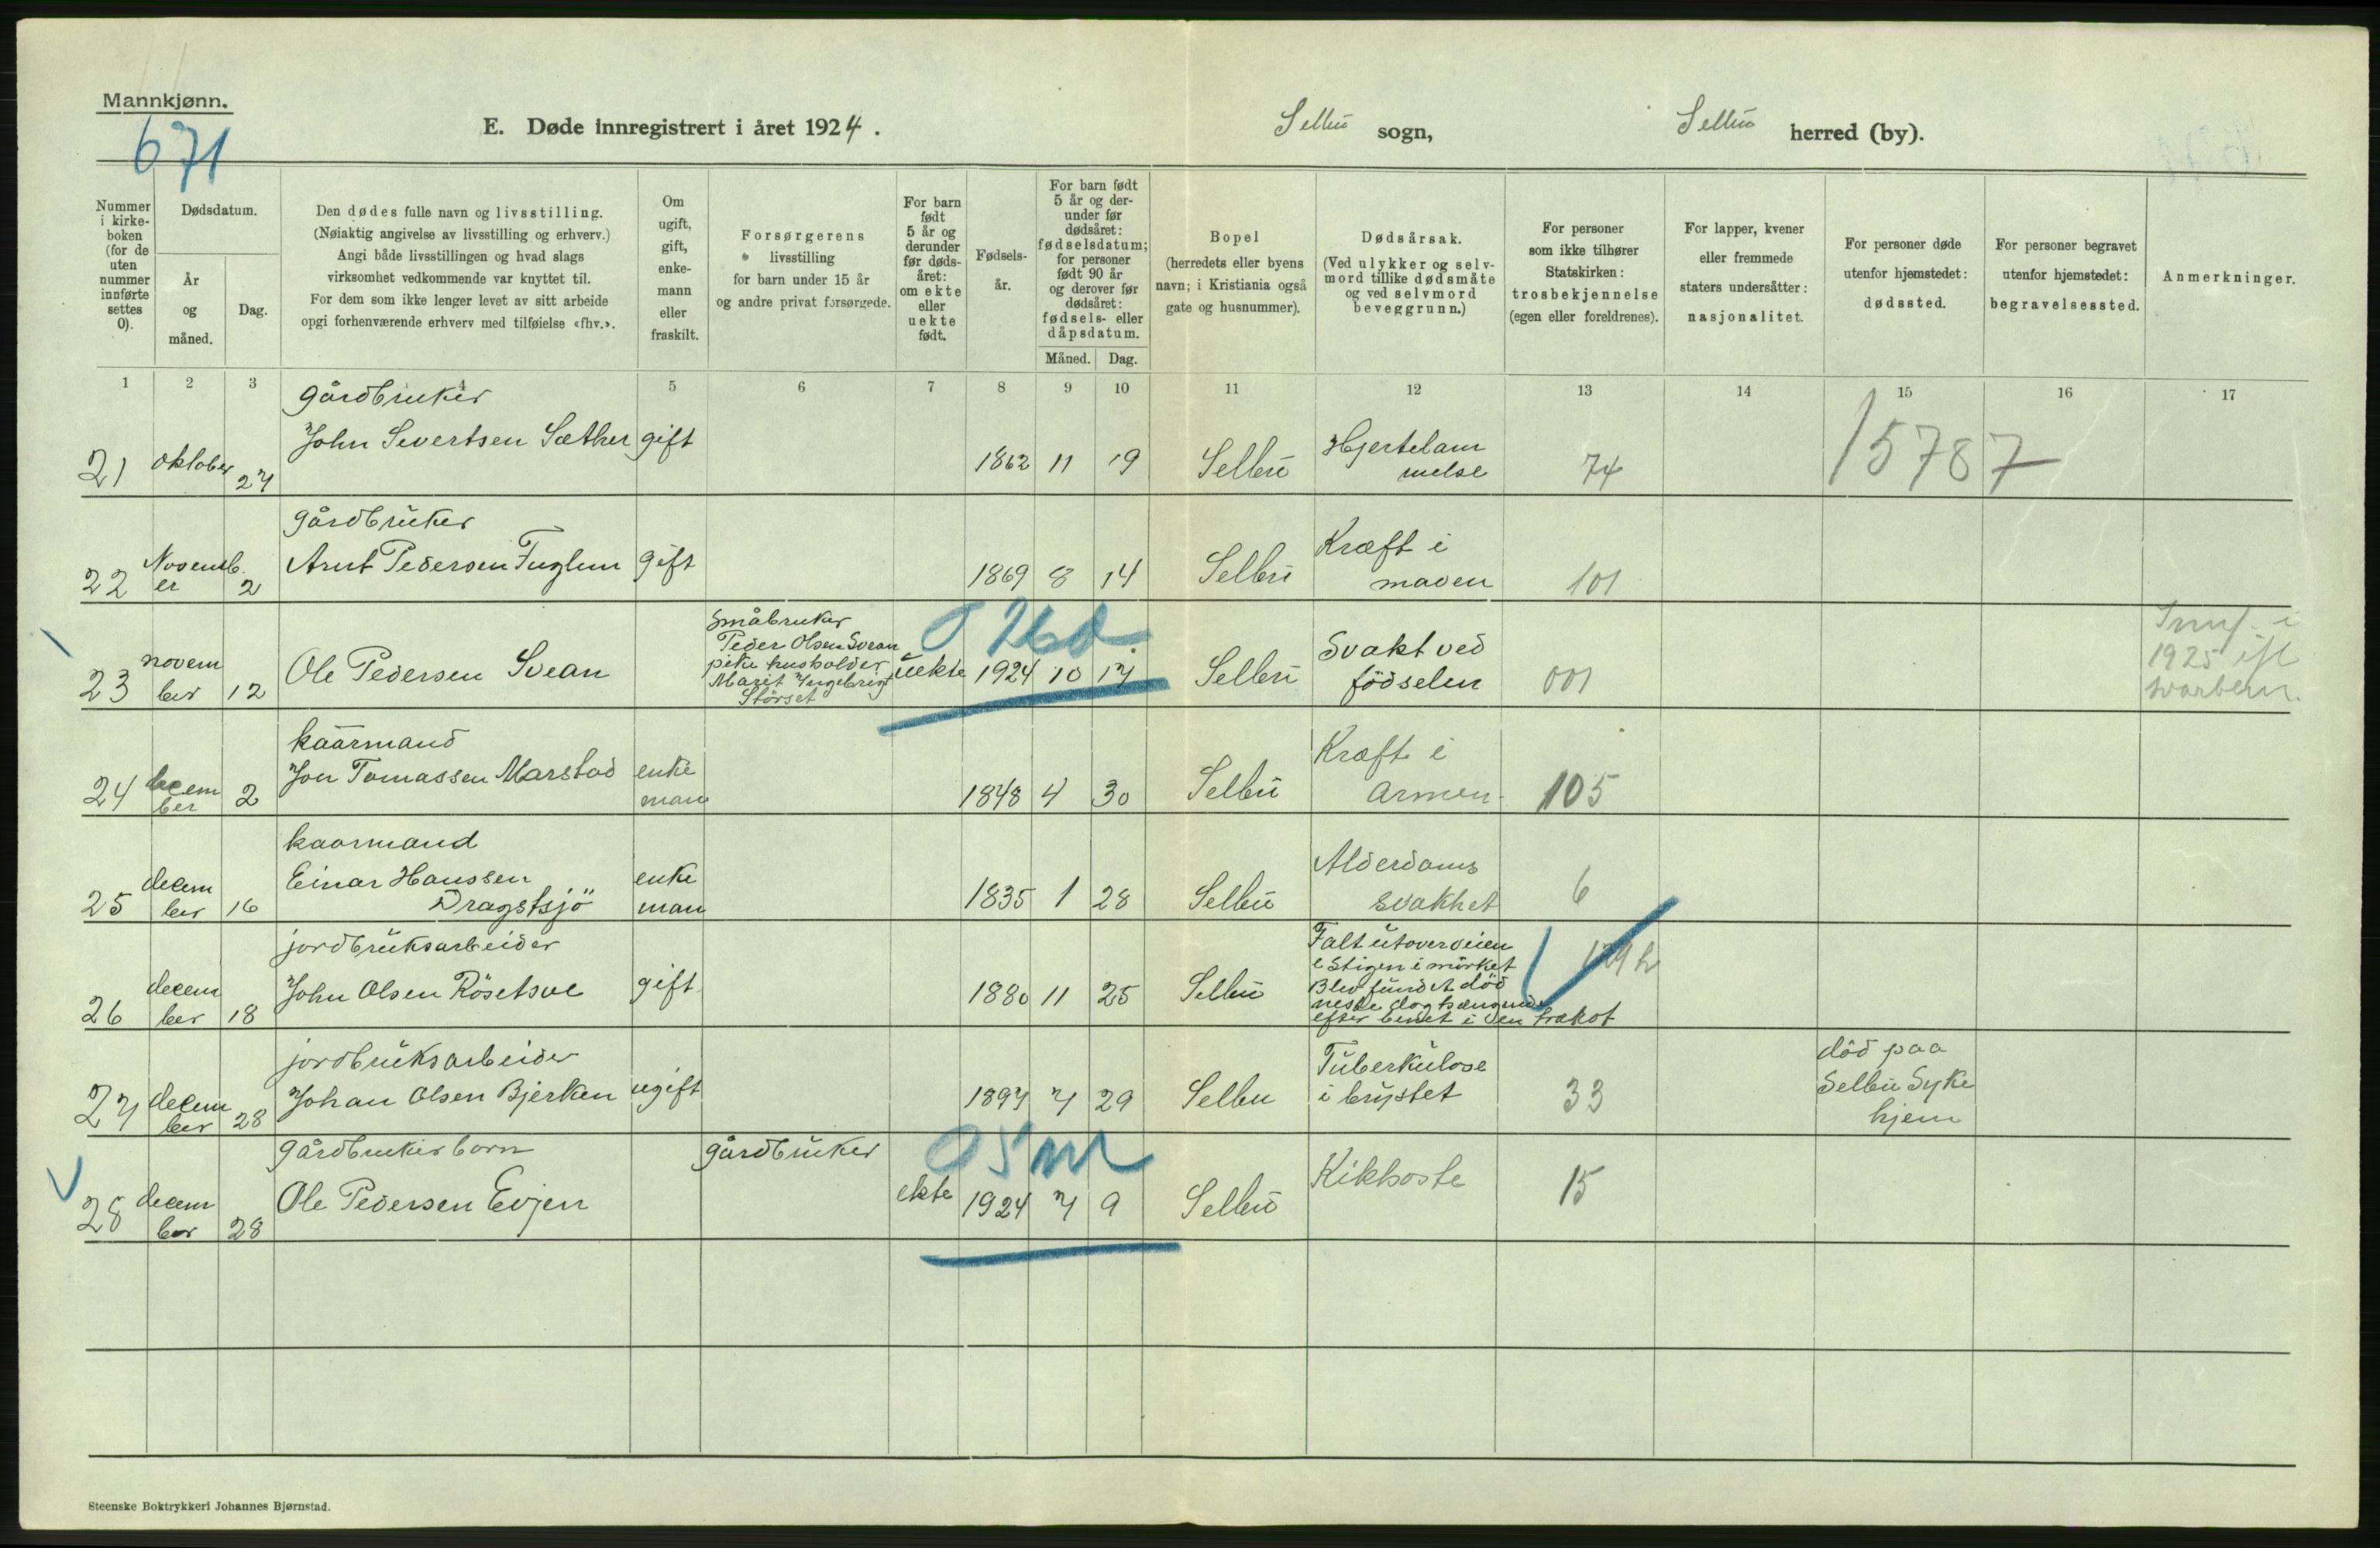 Mannkjønn.
671
E. Døde innregistrert i året 1924.
Selbu sogn,
Selbu herred (by).
Nummer i kirke-boken (for de uten nummer innførte settes 0).
Dødsdatum.
År og måned.
Dag.
Den dødes fulle navn og livsstilling.
(Nøiaktig angivelse av livsstilling og erhverv.)
Angi både livsstillingen og hvad slags
virksomhet vedkommende var knyttet til.
For dem som ikke lenger levet av sitt arbeide
opgi forhenværende erhverv med tilføielse «fhv.».
Om ugift, gift, enke-mann eller fraskilt.
Forsørgerens
livsstilling
for barn under 15 år
og andre privat forsørgede.
For barn født 5 år og derunder før døds-året: om ekte eller uekte født.
Fødsels-år.
For barn født 5 år og der-under før dødsåret: fødselsdatum; for personer født 90 år og derover før dødsåret: fødsels- eller dåpsdatum.
Måned. Dag.
Bopel
(herredets eller byens
navn; i Kristiania også
gate og husnummer).
Dødsårsak.
(Ved ulykker og selv-
mord tillike dødsmåte
og ved selvmord
beveggrunn.)
For personer
som ikke tilhører
Statskirken:
trosbekjennelse
(egen eller foreldrenes).
For lapper, kvener
eller fremmede
staters undersåtter:
nasjonalitet.
For personer døde
utenfor hjemstedet:
dødssted.
For personer begravet
utenfor hjemstedet:
begravelsessted.
Anmerkninger.
1 2 3 4 5 6 7 8 9 10 11 12 13 14 15 16 17
gårdbruker
21 oktober 27 John Severtsen Sæther gift 1862 11 19 Selbu Hjertelam
melse 74 15787
gårdbruker
22 Novemb.
er 2 Arnt Pedersen Fuglem gift 1869 8 14 Selbu Kræft i
maven 101
småbruker
Peder Olsen Svean
pike husholder
Marit Ingebrigt
Störset
23 novem
ber 12 Ole Pedersen Svean uekte 1924 10 17 Selbu Svakt ved
födselen 001
26d.
1925
kaarmand
24 decem
ber 2 Jon Tomassen Marstad enke
man 1848 4 30 Selbu Kræft i
Armen 105
kaarmand
25 decem
ber 16 Einar Hanssen
Dragstsjö enke
man 1835 1 28 Selbu Alderdoms
svakhet 6
jordbruksarbeider
26 decem
ber 18 John Olsen Rösetsve gift 1880 11 25 Selbu Falt utover veien
i mörket
Blev fundet död
neste dag
efter benet i den
jordbruksarbeider
27 decem
ber 28 Johan Olsen Bjerken ugift 1897 7 29 Selbu Tuberkulose
i brystet 33 död paa
Selbu Syke
hjem
gårdbrukerbarn gårdbruker
5 m
28 decem
ber 28 Ole Pedersen Evjen ekte 1924 7 9 Selbu Kikhoste 15
Steenske Boktrykkeri Johannes Bjørnstad.